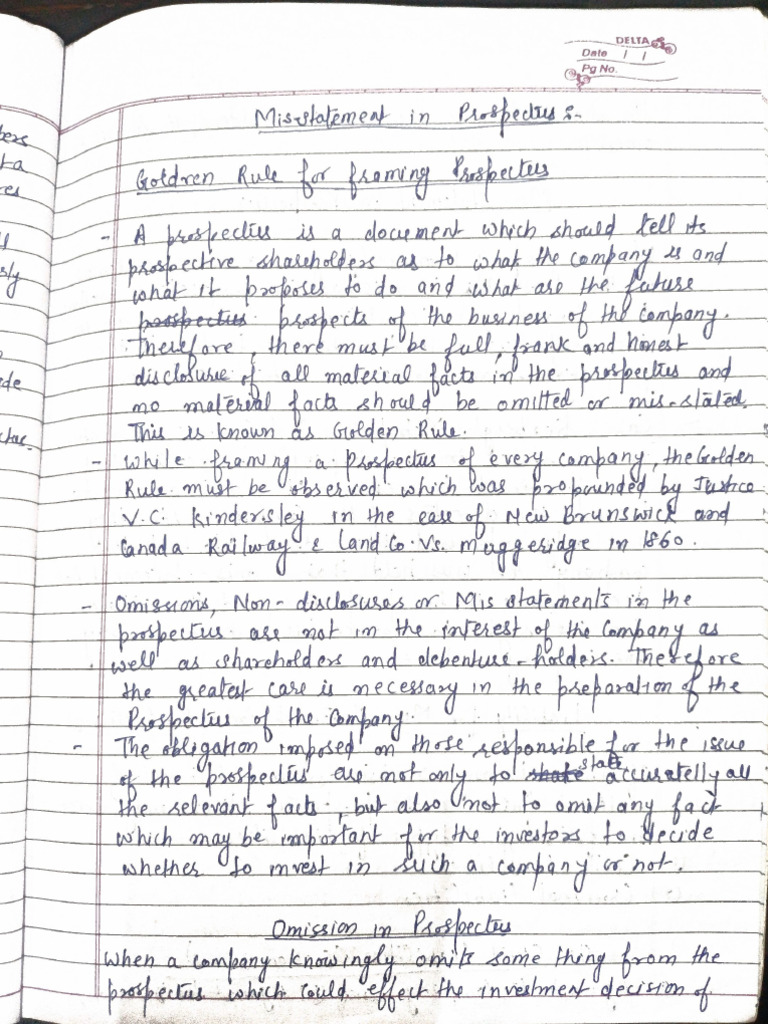 DELTA
Date / /
Pg No.
Mis-statement in Prospectus :-
Goldren Rule for framing Prospectus
- A prospectus is a document which should tell its
prospective shareholders as to what the company is and
what it proposes to do and what are the future
prospectus prospects of the business of the company.
Therefore, there must be full, frank and honest
disclosure of all material facts in the prospectus and
no material facts should be omitted or mis-stated.
This is known as Golden Rule.
- While framing a Prospectus of every company, the Golden
Rule must be observed which was propounded by Justice
V.C. Kindersley in the case of New Brunswick and
Canada Railway & Land Co. Vs. Muggeridge in 1860.
- Omissions, Non-disclosures or Mis statements in the
prospectus are not in the interest of the Company as
well as shareholders and debenture-holders. Therefore
the greatest care is necessary in the preparation of the
Prospectus of the Company.
- The obligation imposed on those responsible for the issue
of the prospectus are not only to state accuratelly all
the relevant facts, but also not to omit any fact
which may be important for the investors to decide
whether to invest in such a company or not.
Omission in Prospectus
When a company knowingly omits some thing from the
prospectus which could effect the investment decision of